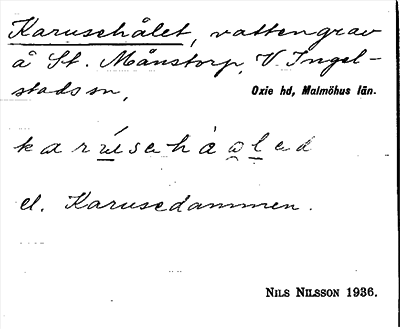 Karusehålet, vattengrav
å St. Månstorp, V. Ingel-
stads sn,
Oxie hd, Malmöhus län.
el. Karusedammen.
NILS NILSSON 1936.